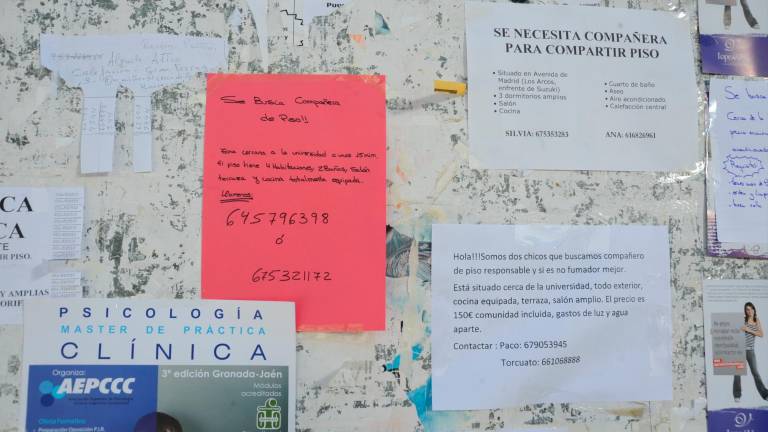 Alquilo Atico
Se Busca Compañera
de Piso!!
Zona cercana a la universidad a unos 15 min.
El piso tiene 4 Habitaciones, 2 Baños, Salón
terraza y cocina totalmente equipada.
Llamanos:
645796398
ó
675321172
SE NECESITA COMPAÑERA
PARA COMPARTIR PISO
• Situado en Avenida de
Madrid (Los Arcos,
enfrente de Suzuki)
• 3 dormitorios amplios
• Salón
• Cocina
• Cuarto de baño
• Aseo
• Aire acondicionado
• Calefacción central
SILVIA: 675353283
ANA: 616826961
Hola!!!Somos dos chicos que buscamos compañero
de piso responsable y si es no fumador mejor.
Está situado cerca de la universidad, todo exterior,
cocina equipada, terraza, salón amplio. El precio es
150€ comunidad incluida, gastos de luz y agua
aparte.
Contactar : Paco: 679053945
Torcuato: 661068888
CA
A
TE
R PISO.
Y AMPLIAS
PSICOLOGÍA
MASTER DE PRÁCTICA
CLÍNICA
Organiza:
AEPCCC
3ª edición Granada-Jaén
Módulos
acreditados
Oferta Formativa:
Preparación Oposición P.I.R.
Se busca
Cerca de la